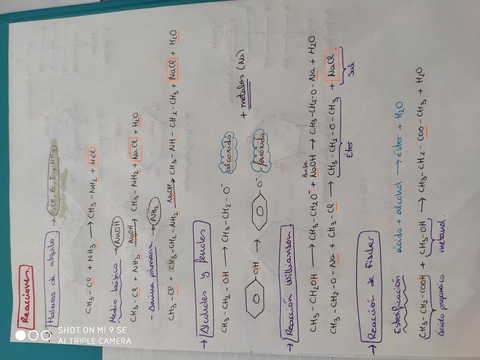 Reacciones
Haluros de alquilo →
CH₃-Cl + NH₃ → CH₃-NH₂ + HCl
Medio básico → (NaOH)
CH₃-Cl + NH₃ NaOH → CH₃-NH₂ + NaCl + H₂O
- Amina primaria → (NH₂)
CH₃-Cl + CH₃-CH₂-NH₂ NaOH → CH₃-NH-CH₂-CH₃ + NaCl + H₂O
→ Alcoholes y fenoles
CH₃-CH₂-OH → CH₃-CH₂-O⁻ alcóxido
OH → O⁻ fenóxido + metales (Na)
→ Reacción Williamson
CH₃-CH₂OH → CH₃-CH₂O⁻ + Base NaOH → CH₃-CH₂-O-Na + H₂O
CH₃-CH₂-O-Na + CH₃-Cl → CH₃-CH₂-O-CH₃ + NaCl
Éter Sal
→ Reacción de fischer
Esterificación ácido + alcohol → éster + H₂O
CH₃-CH₂-COOH + CH₃-OH → CH₃-CH₂-COO-CH₃ + H₂O
Ácido propanoico metanol
SHOT ON MI 9 SE
AI TRIPLE CAMERA